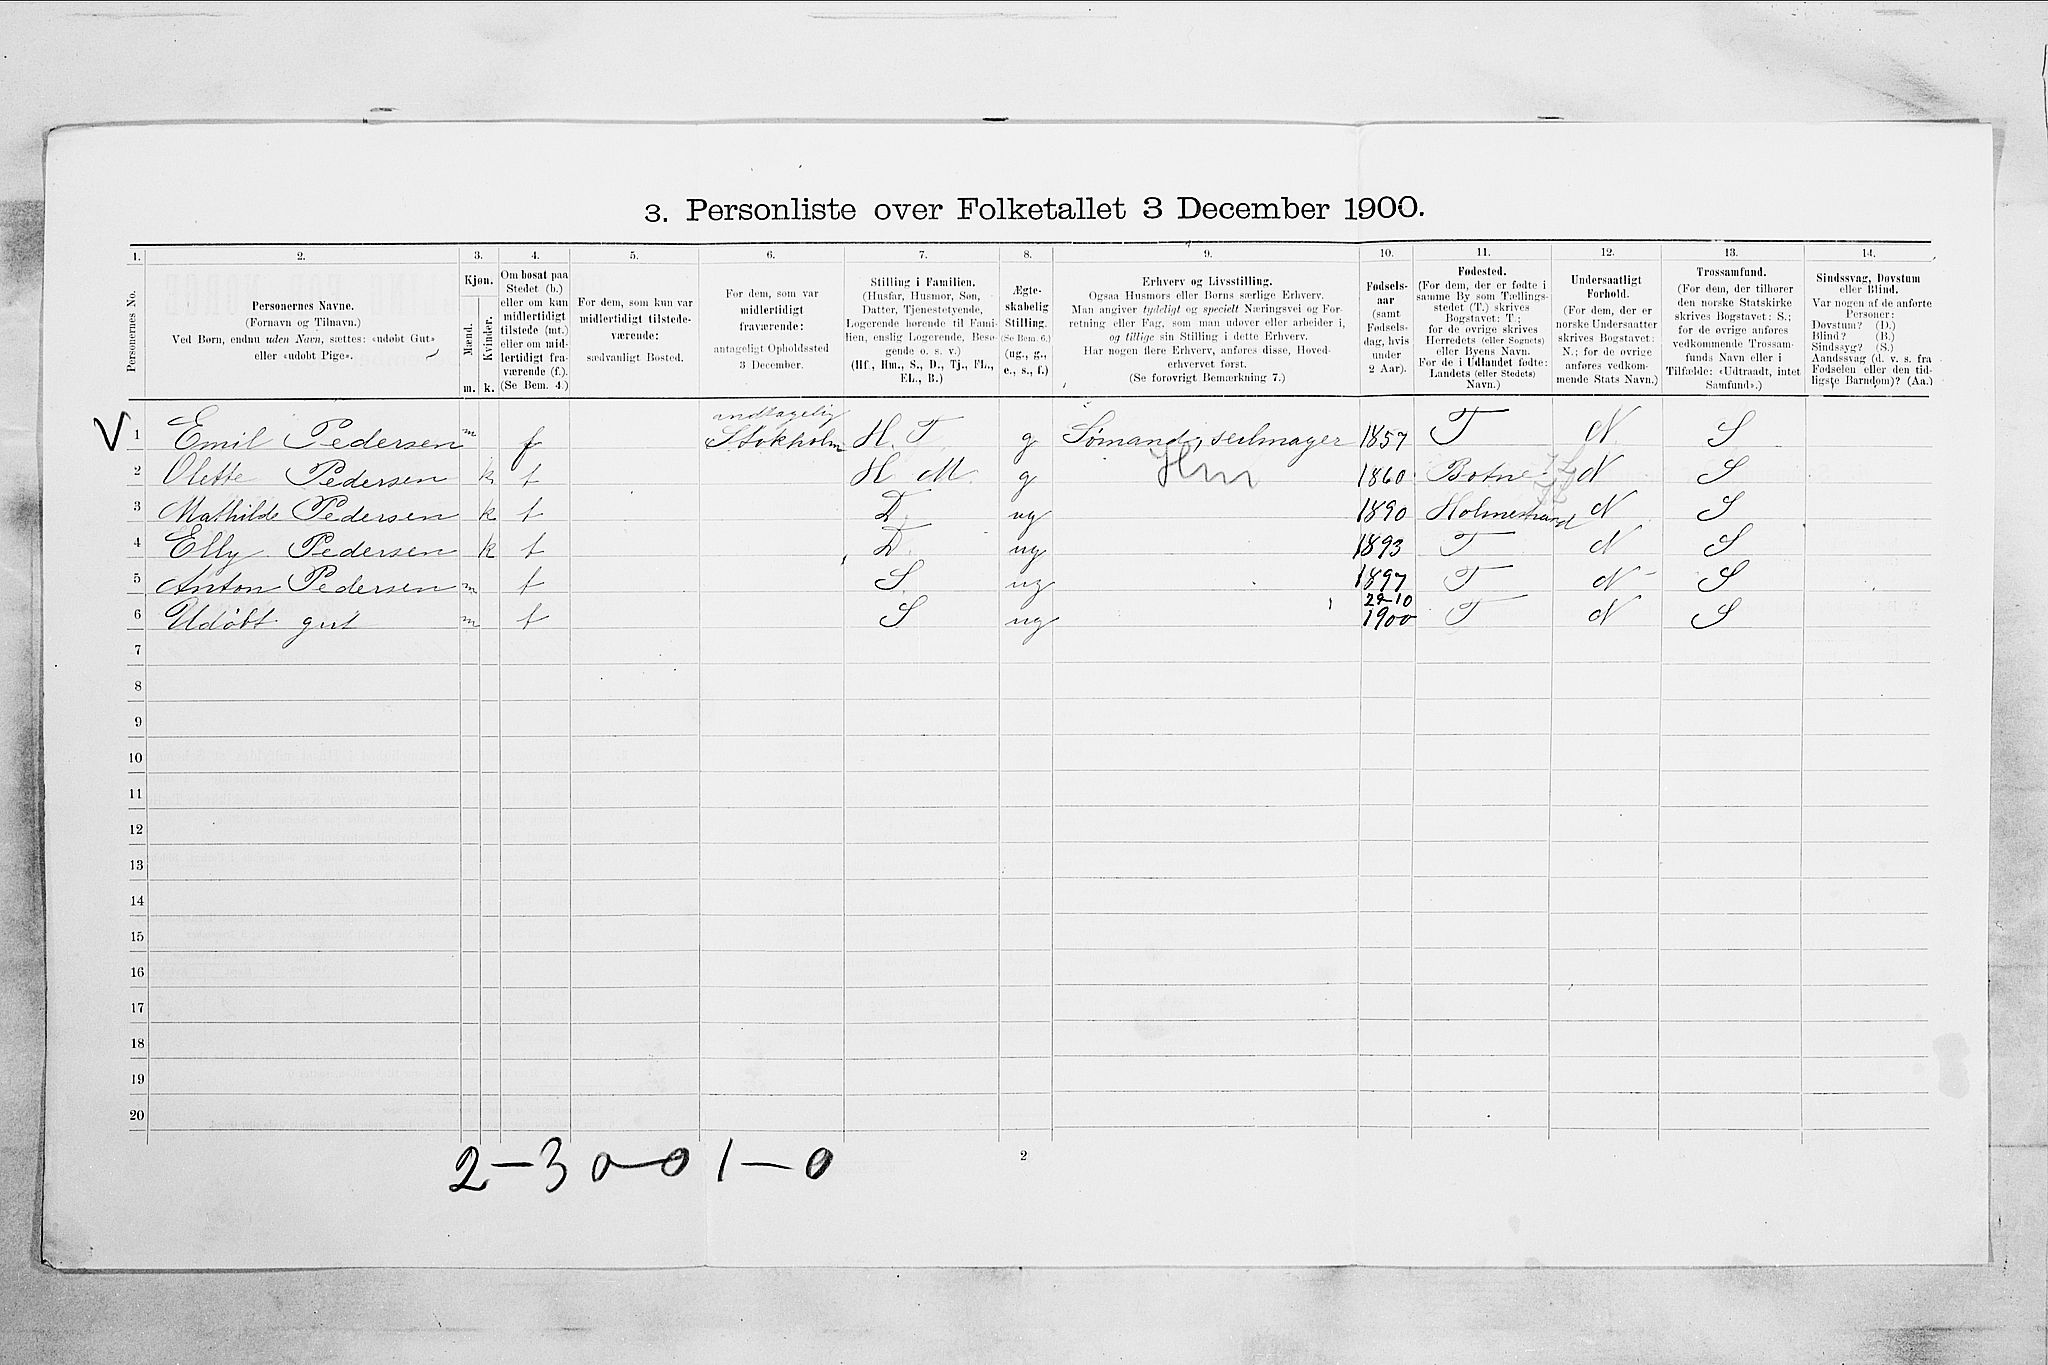 3. Personliste over Folketallet 3 December 1900.
1. 2. 3. 4. 5. 6. 7. 8. 9. 10. 11. 12. 13. 14.
Personernes No.
Personernes Navne.
(Fornavn og Tilnavn.)
Ved Børn, endnu uden Navn, sættes: «udøbt Gut»
eller «udøbt Pige».
Kjøn.
Mænd.
Kvinder.
m. k.
Om bosat paa
Stedet (b.)
eller om kun
midlertidigt
tilstede (mt.)
eller om mid-
lertidigt fra-
værende (f.).
(Se Bem. 4.)
For dem, som kun var
midlertidigt tilstede-
værende:
sædvanligt Bosted.
For dem, som var
midlertidigt
fraværende:
antageligt Opholdssted
3 December.
Stilling i Familien.
(Husfar, Husmor, Søn,
Datter, Tjenestetyende,
Logerende hørende til Fami-
lien, enslig Logerende, Besø-
gende o. s. v.)
(Hf., Hm., S., D., Tj., FL.,
EL., B.)
Ægte-
skabelig
Stilling.
(Se Bem. 6.)
(ug., g.,
e., s., f.)
Erhverv og Livsstilling.
Ogsaa Husmors eller Børns særlige Erhverv.
Man angiver tydeligt og specielt Næringsvei og For-
retning eller Fag, som man udøver eller arbeider i,
og tillige sin Stilling i dette Erhverv.
Har nogen flere Erhverv, anføres disse, Hoved-
erhvervet først.
(Se forøvrigt Bemærkning 7.)
Fødsels-
aar
(samt
Fødsels-
dag, hvis
under
2 Aar).
Fødested.
(For dem, der er fødte i
samme By som Tællings-
stedet (T.) skrives
Bogstavet: T.;
for de øvrige skrives
Herredets (eller Sognets)
eller Byens Navn.
For de i Udlandet fødte:
Landets (eller Stedets)
Navn.)
Undersaatligt
Forhold.
(For dem, der er
norske Undersaatter
skrives Bogstavet:
N.; for de øvrige
anføres vedkom-
mende Stats Navn.)
Trossamfund.
(For dem, der tilhører
den norske Statskirke
skrives Bogstavet: S.;
for de øvrige anføres
vedkommende Trossam-
funds Navn eller i
Tilfælde: «Udtraadt, intet
Samfund».)
Sindssvag, Døvstum
eller Blind.
Var nogen af de anførte
Personer:
Døvstum? (D.)
Blind? (B.)
Sindssyg? (S.)
Aandssvag (d. v. s. fra
Fødselen eller den tid-
ligste Barndom)? (Aa.)
V 1 Emil Pedersen m f andtagelig Stokholm H. T. g Sømand, seilmager 1857 T N S
2 Olette Pedersen k t H M. g Hm 1860 Botne N S
3 Mathilde Pedersen k t D. ug 1890 Holmestrand N S
4 Elly Pedersen k t D. ug 1893 T N S
5 Anton Pedersen m t S. ug 1897 T N S
6 Udøbt gut m t S ug 22-10 1900 T N S
7
8
9
10
11
12
13
14
15
16
17
18
19
20
2-3 0-0 1-0
2